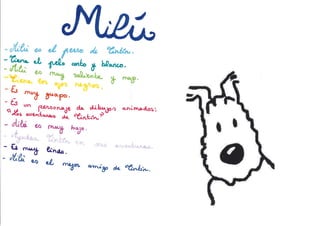 Milú
- Milú es el perro de Tintín.
- Tiene el pelo corto y blanco.
- Milú es muy valiente y majo.
- Tiene los ojos negros.
- Es muy guapo.
- Es un personaje de dibujos animados:
"Las aventuras de Tintín"
- Milú es muy bajo.
- Ayuda a Tintín en sus aventuras.
- Es muy lindo.
- Milú es el mejor amigo de Tintín.